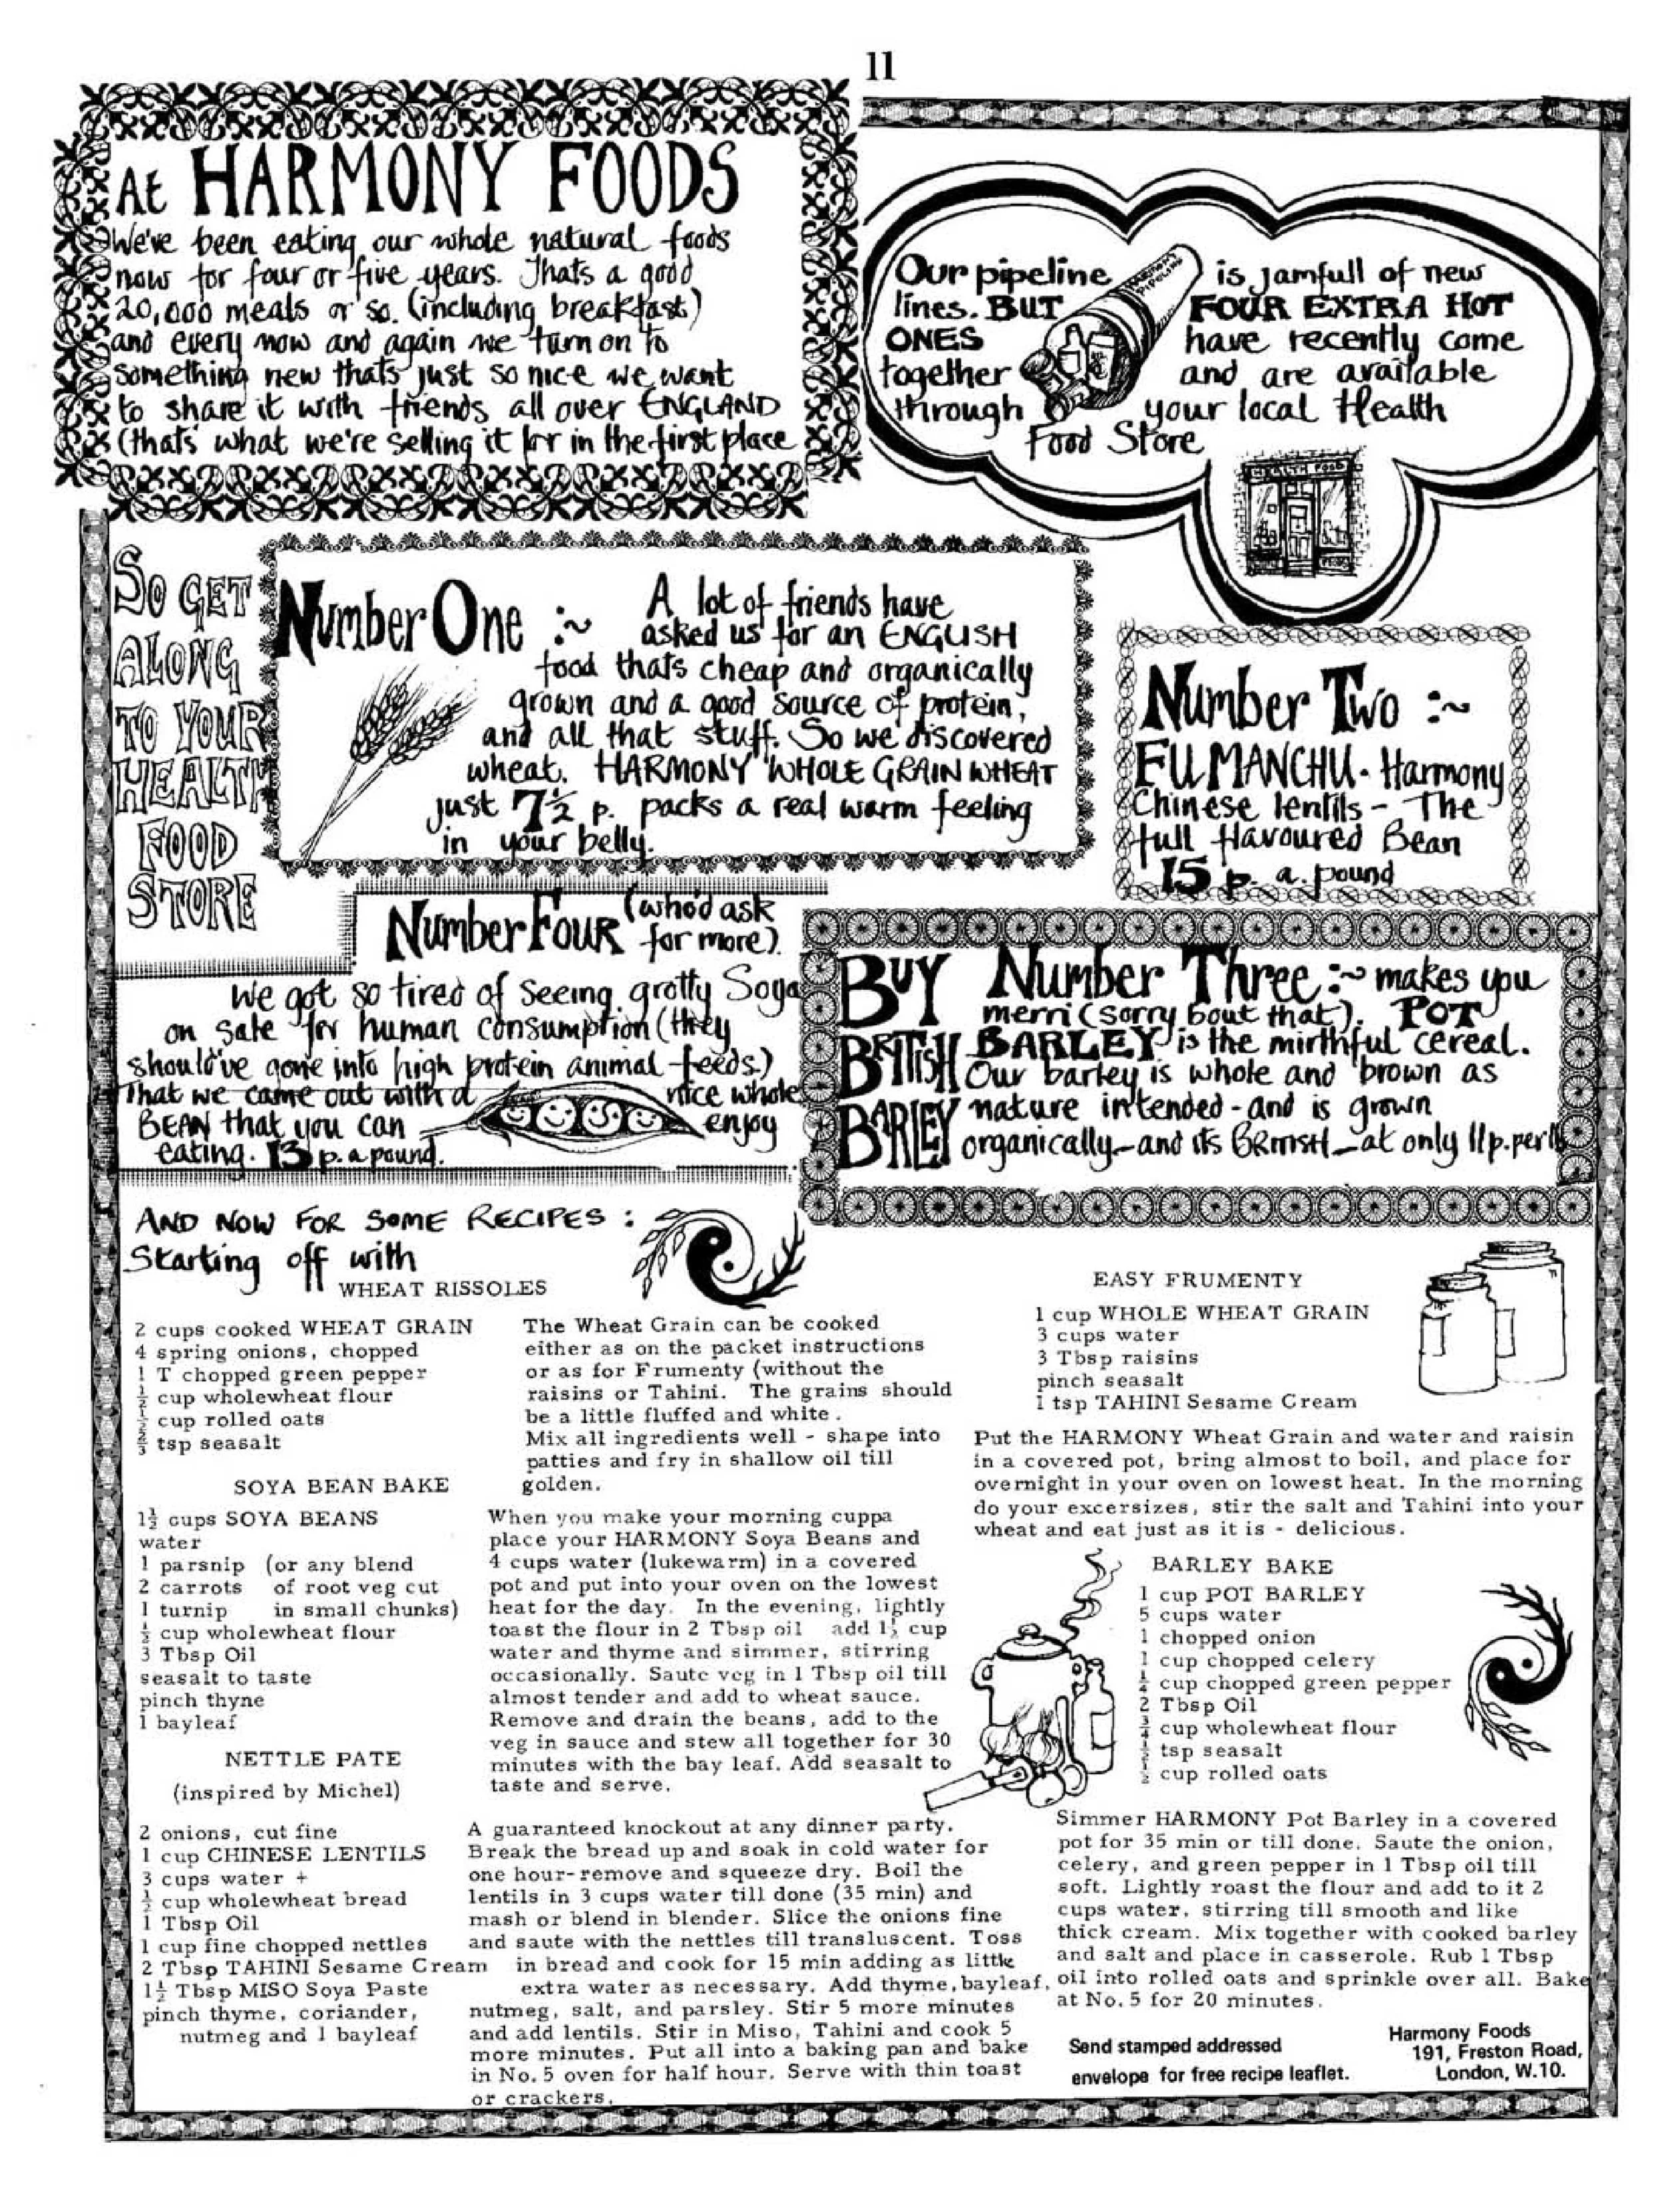 11
At HARMONY FOODS
We've been eating our whole natural foods
now for four or five years. Thats a good
20,000 meals or so. (including breakfast)
and every now and again we turn on to
something new thats just so nice we want
to share it with friends all over ENGLAND
(thats what we're selling it for in the first place
Our pipeline is jamfull of new
lines. BUT FOUR EXTRA HOT
ONES have recently come
together and are available
through your local Health
Food Store
HARMONY PIPELINE
HEALTH FOOD
SO GET
ALONG
TO YOUR
HEALTH
FOOD
STORE
Number One :~ A lot of friends have
asked us for an ENGLISH
food thats cheap and organically
grown and a good source of protein,
and all that stuff. So we discovered
wheat. HARMONY WHOLE GRAIN WHEAT
just 7½ p. packs a real warm feeling
in your belly.
Number Two :~
FU MANCHU - Harmony
Chinese lentils - The
full flavoured Bean
15 p. a. pound
Number Four (who'd ask
for more).
We got so tired of seeing grotty Soya
on sale for human consumption (they
should've gone into high protein animal feeds.)
That we came out with a nice whole
BEAN that you can enjoy
eating. 13 p. a pound.
BUY
BRITISH
BARLEY
Number Three :~ makes you
merri (sorry bout that). POT
BARLEY is the mirthful cereal.
Our barley is whole and brown as
nature intended - and is grown
organically - and its BRITISH - at only 11p. per lb
AND NOW FOR SOME RECIPES :
Starting off with
WHEAT RISSOLES
2 cups cooked WHEAT GRAIN
4 spring onions, chopped
1 T chopped green pepper
½ cup wholewheat flour
½ cup rolled oats
⅔ tsp seasalt
The Wheat Grain can be cooked
either as on the packet instructions
or as for Frumenty (without the
raisins or Tahini. The grains should
be a little fluffed and white .
Mix all ingredients well - shape into
patties and fry in shallow oil till
golden.
SOYA BEAN BAKE
1½ cups SOYA BEANS
water
1 parsnip (or any blend
2 carrots of root veg cut
1 turnip in small chunks)
½ cup wholewheat flour
3 Tbsp Oil
seasalt to taste
pinch thyne
1 bayleaf
When you make your morning cuppa
place your HARMONY Soya Beans and
4 cups water (lukewarm) in a covered
pot and put into your oven on the lowest
heat for the day. In the evening, lightly
toast the flour in 2 Tbsp oil add 1½ cup
water and thyme and simmer, stirring
occasionally. Saute veg in 1 Tbsp oil till
almost tender and add to wheat sauce.
Remove and drain the beans, add to the
veg in sauce and stew all together for 30
minutes with the bay leaf. Add seasalt to
taste and serve.
NETTLE PATE
(inspired by Michel)
2 onions, cut fine
1 cup CHINESE LENTILS
3 cups water +
½ cup wholewheat bread
1 Tbsp Oil
1 cup fine chopped nettles
2 Tbsp TAHINI Sesame Cream
1½ Tbsp MISO Soya Paste
pinch thyme, coriander,
nutmeg and 1 bayleaf
A guaranteed knockout at any dinner party.
Break the bread up and soak in cold water for
one hour-remove and squeeze dry. Boil the
lentils in 3 cups water till done (35 min) and
mash or blend in blender. Slice the onions fine
and saute with the nettles till transluscent. Toss
in bread and cook for 15 min adding as little
extra water as necessary. Add thyme, bayleaf,
nutmeg, salt, and parsley. Stir 5 more minutes
and add lentils. Stir in Miso, Tahini and cook 5
more minutes. Put all into a baking pan and bake
in No. 5 oven for half hour. Serve with thin toast
or crackers.
EASY FRUMENTY
1 cup WHOLE WHEAT GRAIN
3 cups water
3 Tbsp raisins
pinch seasalt
1 tsp TAHINI Sesame Cream
Put the HARMONY Wheat Grain and water and raisin
in a covered pot, bring almost to boil, and place for
overnight in your oven on lowest heat. In the morning
do your excersizes, stir the salt and Tahini into your
wheat and eat just as it is - delicious.
BARLEY BAKE
1 cup POT BARLEY
5 cups water
1 chopped onion
1 cup chopped celery
¼ cup chopped green pepper
2 Tbsp Oil
¾ cup wholewheat flour
½ tsp seasalt
½ cup rolled oats
Simmer HARMONY Pot Barley in a covered
pot for 35 min or till done. Saute the onion,
celery, and green pepper in 1 Tbsp oil till
soft. Lightly roast the flour and add to it 2
cups water, stirring till smooth and like
thick cream. Mix together with cooked barley
and salt and place in casserole. Rub 1 Tbsp
oil into rolled oats and sprinkle over all. Bake
at No. 5 for 20 minutes.
Send stamped addressed
envelope for free recipe leaflet.
Harmony Foods
191, Freston Road,
London, W.10.